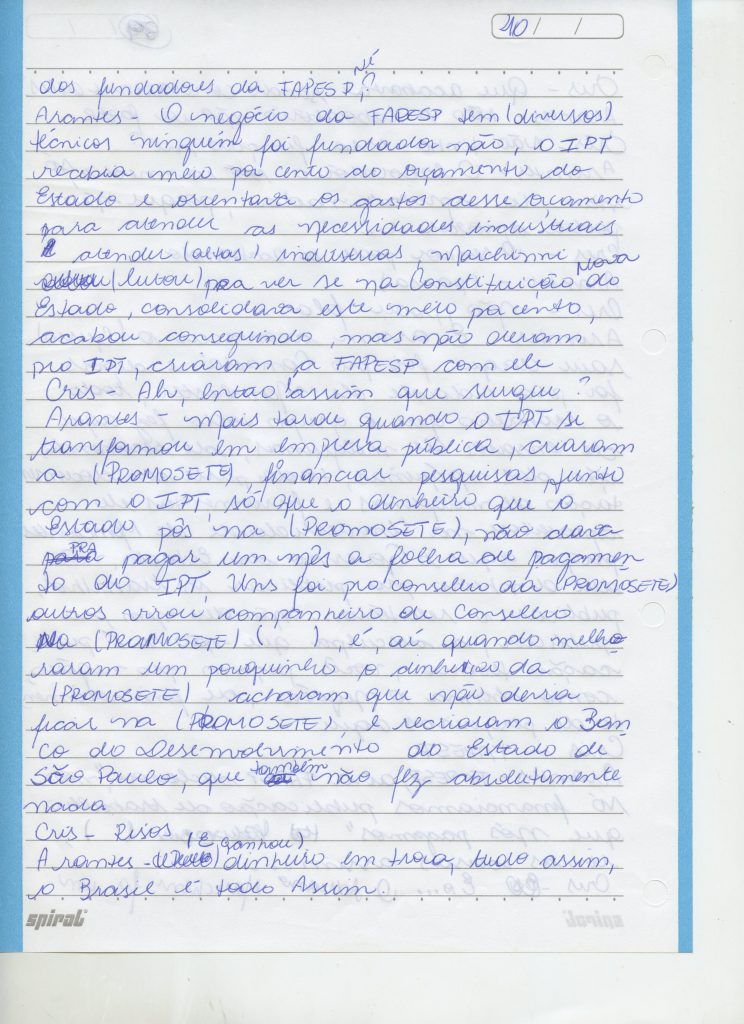 40 / /
dos fundadores da FAPESP, né?
Arantes - O negócio da FAPESP tem (diversos)
técnicos ninguém foi fundador não, o IPT
recebia meio por cento do orçamento do
Estado e orientava os gastos desse orçamento
para atender as necessidades industriais
atender (altas) indústrias Marchinni
(lutou) pra ver se na Constituição Nova do
Estado, consolidava este meio por cento,
acabou conseguindo, mas não deram
pro IPT, criaram a FAPESP com ele
Cris - Ah, então assim que surgiu?
Arantes - Mais tarde quando o IPT se
transformou em empresa pública, criaram
a (PROMOSETE), financiar pesquisas junto
com o IPT, só que o dinheiro que o
Estado pôs na (PROMOSETE), não dava
PRA pagar um mês a folha de pagamen
to do IPT, Uns foi pro conselho da (PROMOSETE)
outros virou companheiro de Conselho
Na (PROMOSETE) ( ), é, aí quando melho
raram um pouquinho o dinheiro da
(PROMOSETE) acharam que não devia
ficar na (PROMOSETE), e recriaram o Ban
co do Desenvolvimento do Estado de
São Paulo, que também não fez absolutamente
nada
Cris - Risos
Arantes - (E ganhou) dinheiro em troca, tudo assim,
o Brasil é todo Assim.
spiral